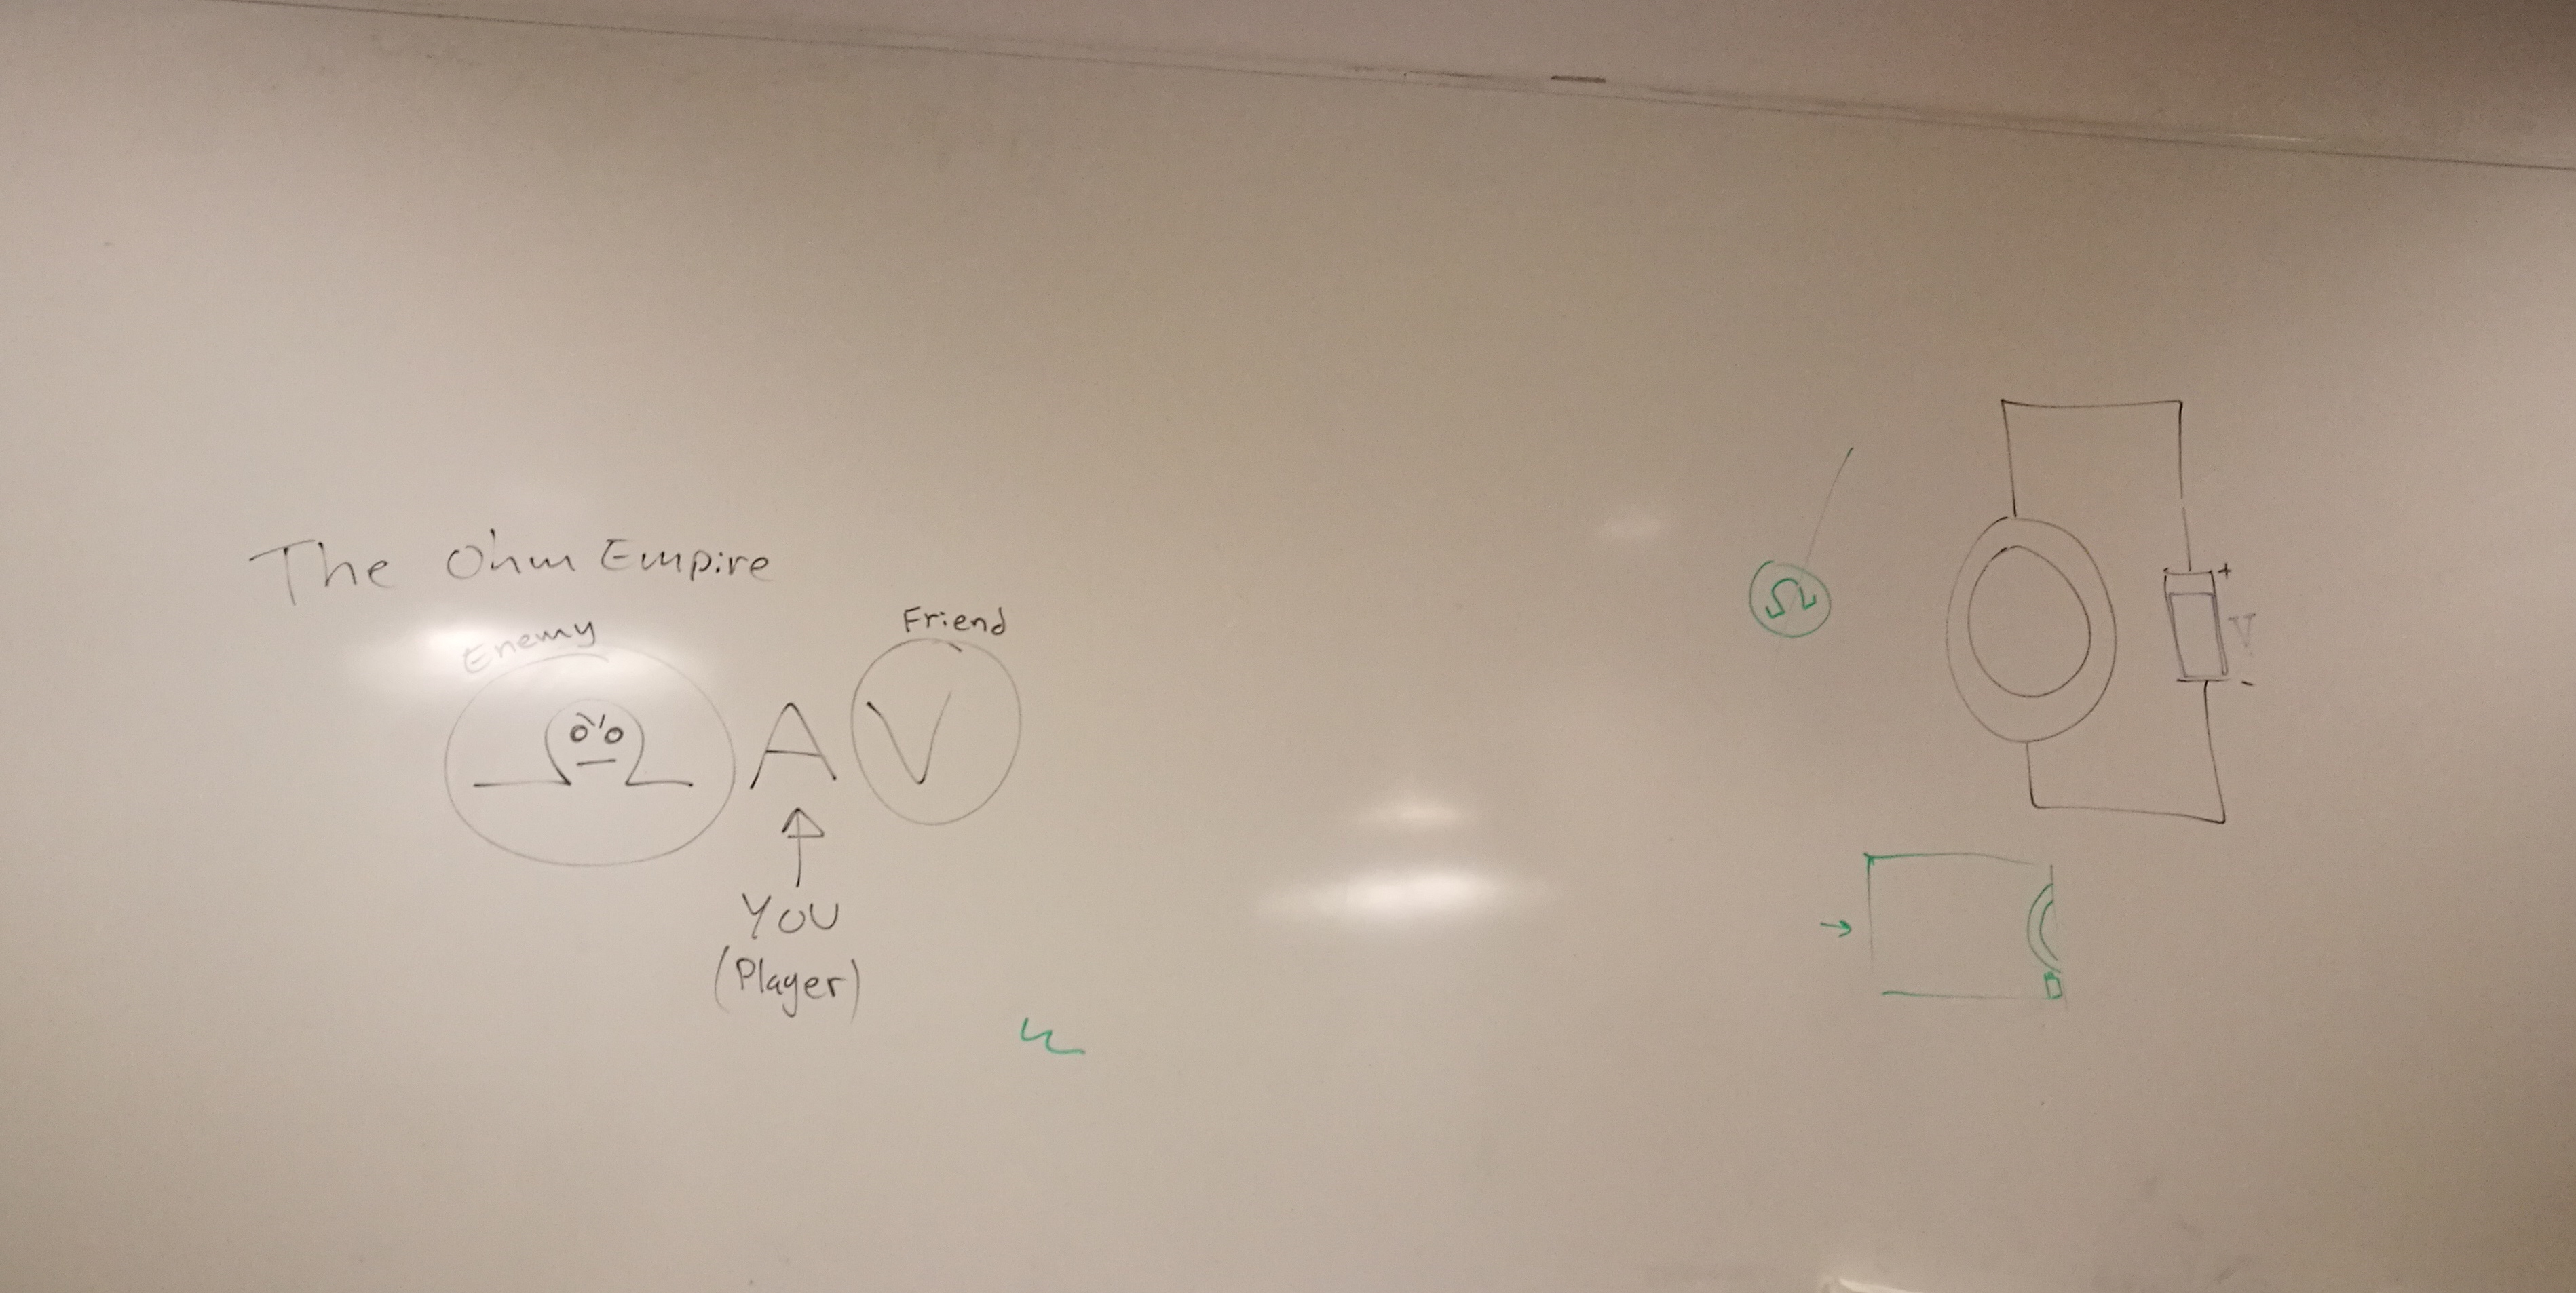 The Ohm Empire
Enemy
Friend
Ω A V
YOU
(Player)
Ω
+
V
-